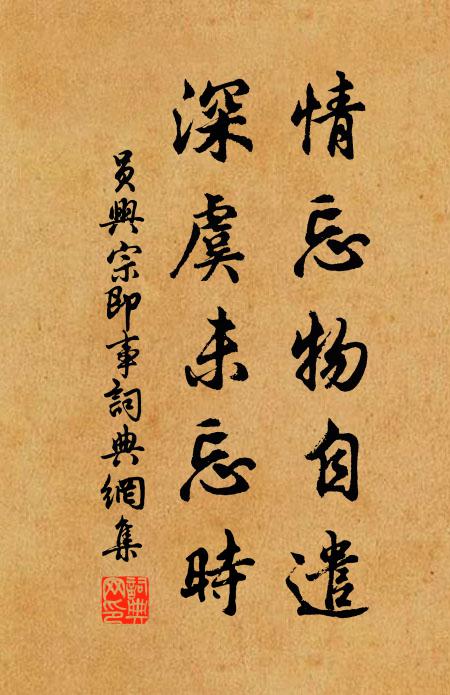 情忘物自遣
深虞未忘時
員興宗即事詞典網集
詞典網印